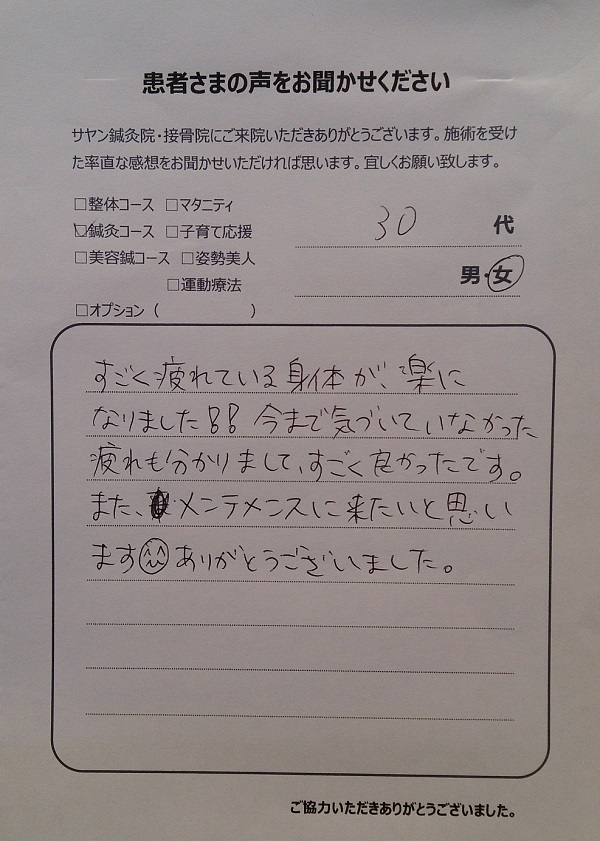 患者さまの声をお聞かせください
サヤン鍼灸院・接骨院にご来院いただきありがとうございます。施術を受け
た率直な感想をお聞かせいただければ思います。宜しくお願い致します。
□整体コース □マタニティ
☑鍼灸コース □子育て応援
□美容鍼コース □姿勢美人
□運動療法
□オプション ( )
30 代
男・女
すごく疲れている身体が、楽に
なりました!! 今まで気づいていなかった
疲れも分かりまして、すごく良かったです。
また、メンテメンスに来たいと思い
ます ありがとうございました。
ご協力いただきありがとうございました。